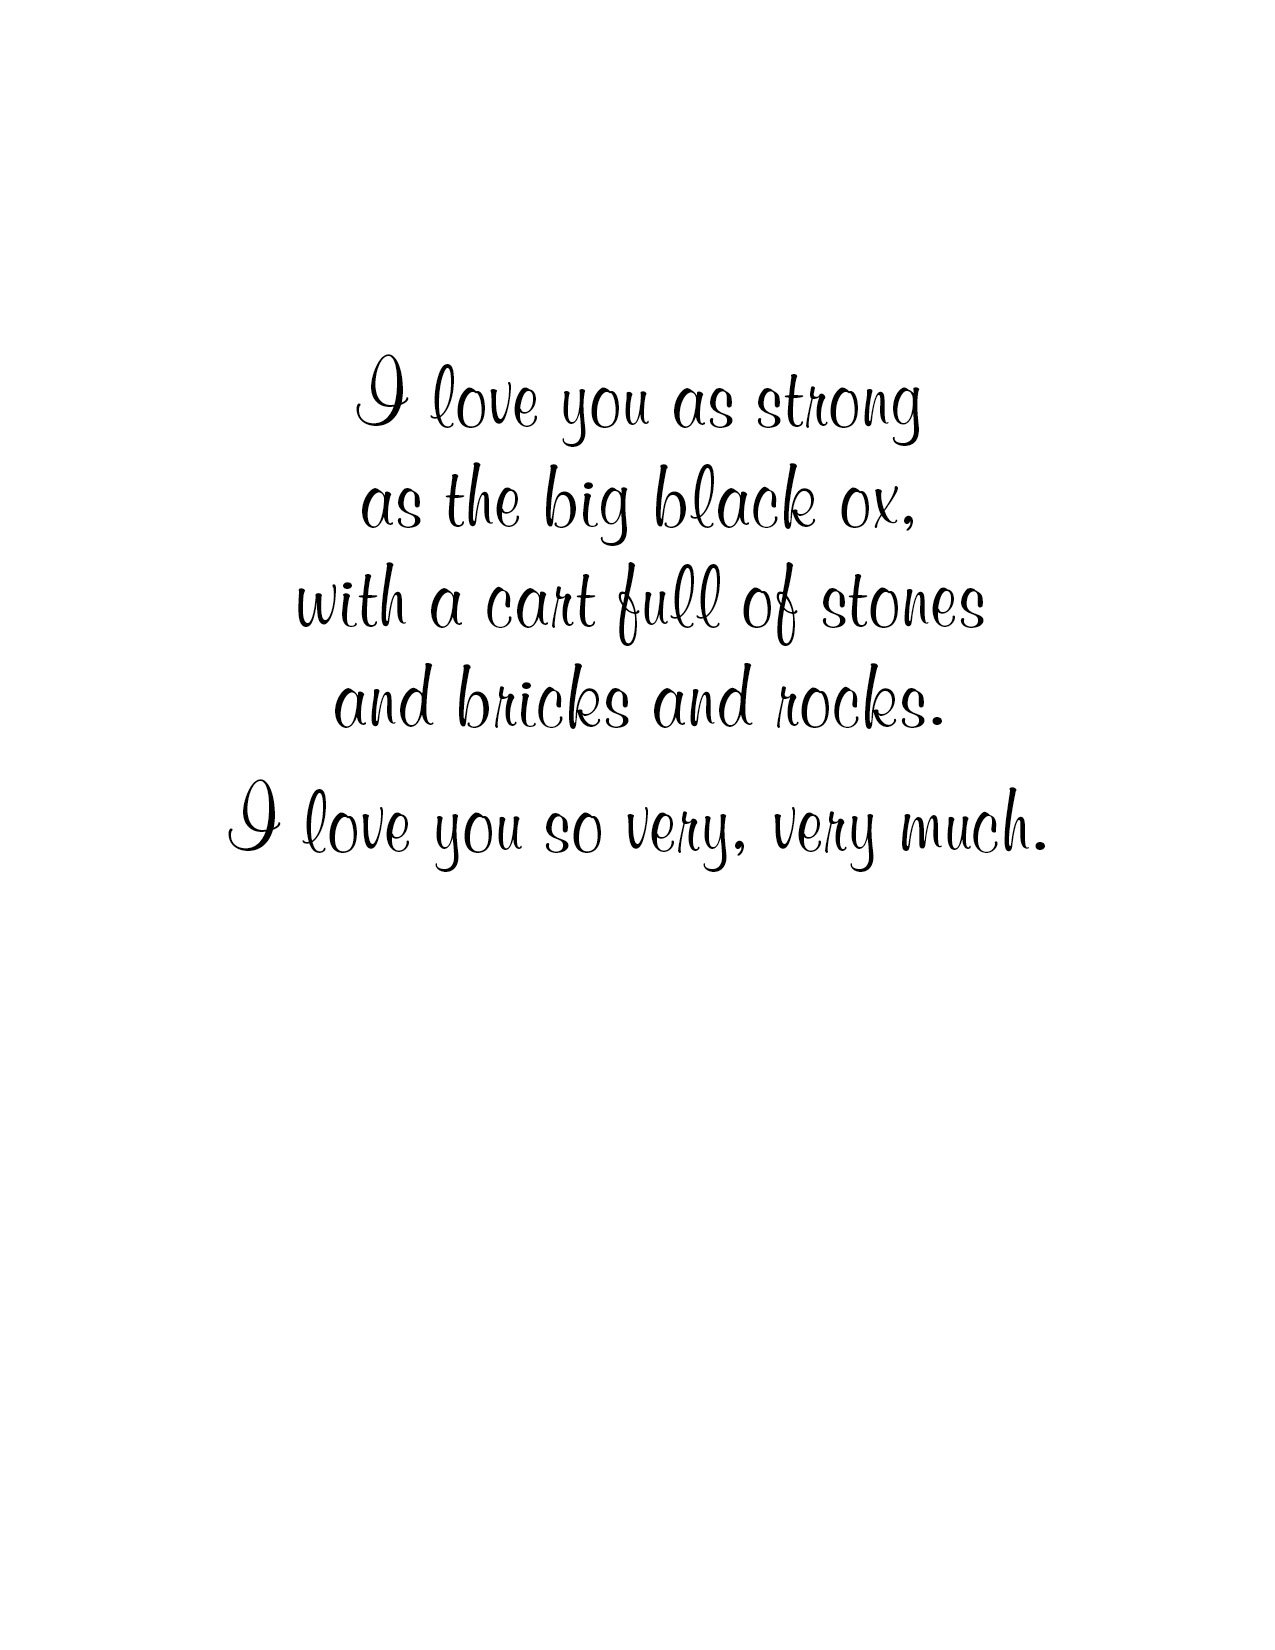 I love you as strong
as the big black ox,
with a cart full of stones
and bricks and rocks.
I love you so very, very much.